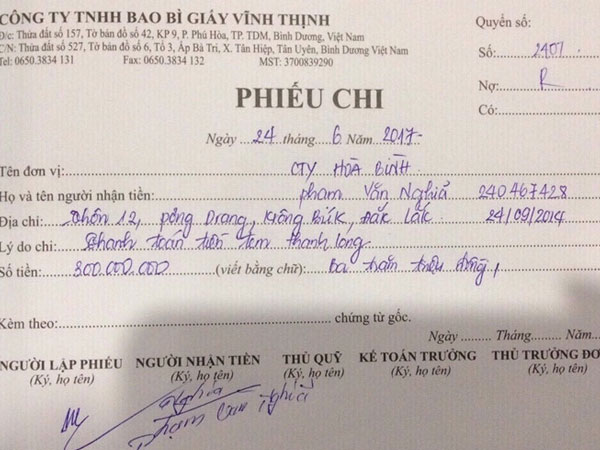 CÔNG TY TNHH BAO BÌ GIẤY VĨNH THỊNH
Đ/c: Thửa đất số 157, Tờ bản đồ số 42, KP 9, P. Phú Hòa, TP. TDM, Bình Dương, Việt Nam
C/N: Thửa đất số 527, Tờ bản đồ số 6, Tổ 3, Ấp Bà Tri, X. Tân Hiệp, Tân Uyên, Bình Dương Việt Nam
Tel: 0650.3834 131 Fax: 0650.3834 132 MST: 3700839290
Quyển số:
Số: 2401
Nợ: R
Có:
PHIẾU CHI
Ngày 24 tháng 6 Năm 2017
Tên đơn vị: CTY HÒA BÌNH
Họ và tên người nhận tiền: phạm Văn Nghĩa 240467428
Địa chỉ: Thôn 12, pơng Drang, Krông Búk, Đăk Lăk 24/09/2014
Lý do chi: Thanh toán tiền tem thanh long
Số tiền: 300.000.000 (viết bằng chữ): Ba trăm triệu đồng,
Kèm theo: chứng từ gốc.
Ngày Tháng Năm
NGƯỜI LẬP PHIẾU NGƯỜI NHẬN TIỀN THỦ QUỸ KẾ TOÁN TRƯỞNG THỦ TRƯỞNG ĐƠ
(Ký, họ tên) (Ký, họ tên) (Ký, họ tên) (Ký, họ tên) (Ký, họ tên)
Nghĩa
Phạm Văn Nghĩa